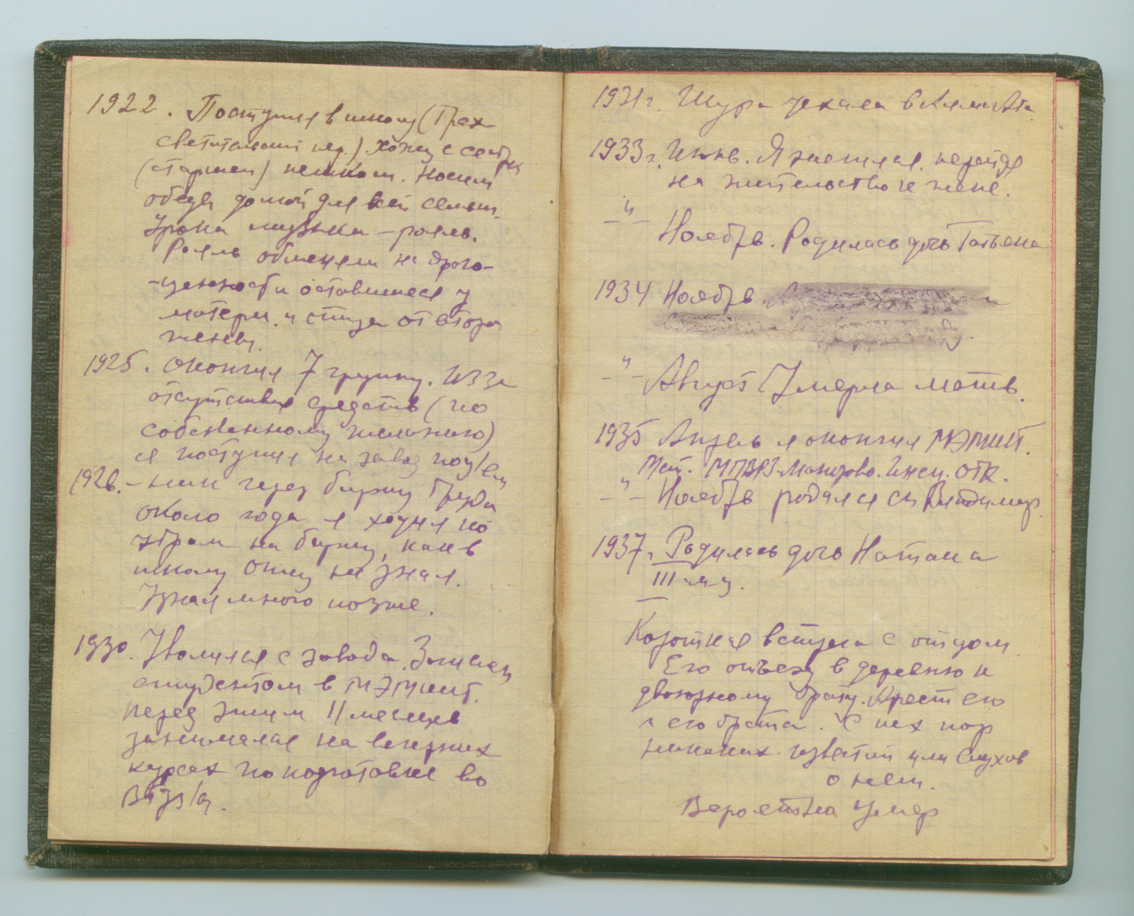 1922. Поступил в школу (Трех
святительский пер.). Хожу с сестр
(старшей) пешком. Носим
обеды домой для всей семьи.
Уроки музыка – рояль.
Рояль обменяли на драго-
-ценности оставшиеся у
матери и отца от второй
жены.
1925. Окончил 7 группу. Из за
отсутствия средств (по
собственному желанию)
я поступил на завод
1926. – через биржу Труда
около года я ходил по
утрам на биржу, как в
школу отец не знал.
Узнал много позже.
1930. Уволился с завода.
студентом в МЭМИИТ.
перед этим 11 месяцев
занимался на вечерних
курсах по подготовке во
ВУЗ/ы.
1931 г. Шура уехала в Алма Ата.
1933 г. Июнь. Я женился. перейдя
на жительство к жене.
–"– Ноябрь. Родилась дочь Татьяна
1934 Ноябрь.
–"– Август Умерла мать.
1935 Апрель я окончил МЭМИИТ.
Инж. ОТК.
–"– Ноябрь родился сын Владимир.
1937 г. Родилась дочь Наташа
III м-ц.
Короткая встреча с отцом.
Его отъезд в деревню к
двоюзному брату. Арест его
и его брата. С тех пор
никаких известий или слухов
о нем.
Вероятно умер